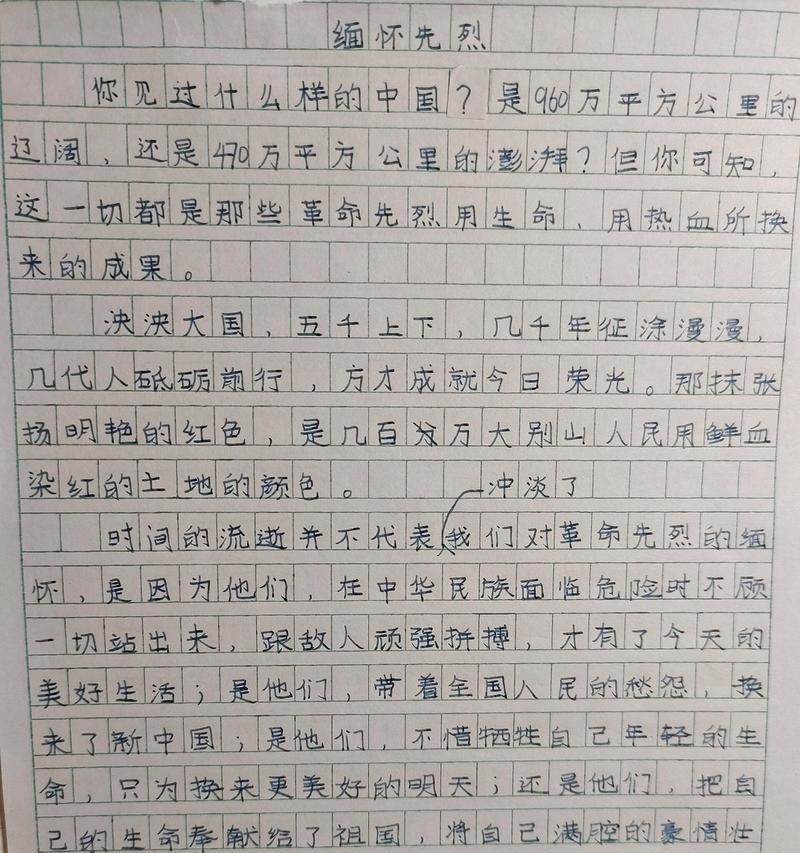 缅怀先烈
你见过什么样的中国?是960万平方公里的
辽阔,还是470万平方公里的澎湃?但你可知,
这一切都是那些革命先烈用生命、用热血所换
来的成果。
泱泱大国,五千上下,几千年征涂漫漫,
几代人砥砺前行,方才成就今日荣光。那抹张
扬明艳的红色,是几百万大别山人民用鲜血
染红的土地的颜色。
冲淡了
时间的流逝并不代表我们对革命先烈的缅
怀,是因为他们,在中华民族面临危险时不顾
一切站出来,跟敌人顽强拼搏,才有了今天的
美好生活;是他们,带着全国人民的愁怨,换
来了新中国;是他们,不惜牺牲自己年轻的生
命,只为换来更美好的明天;还是他们,把自
己的生命奉献给了祖国,将自己满腔的豪情壮